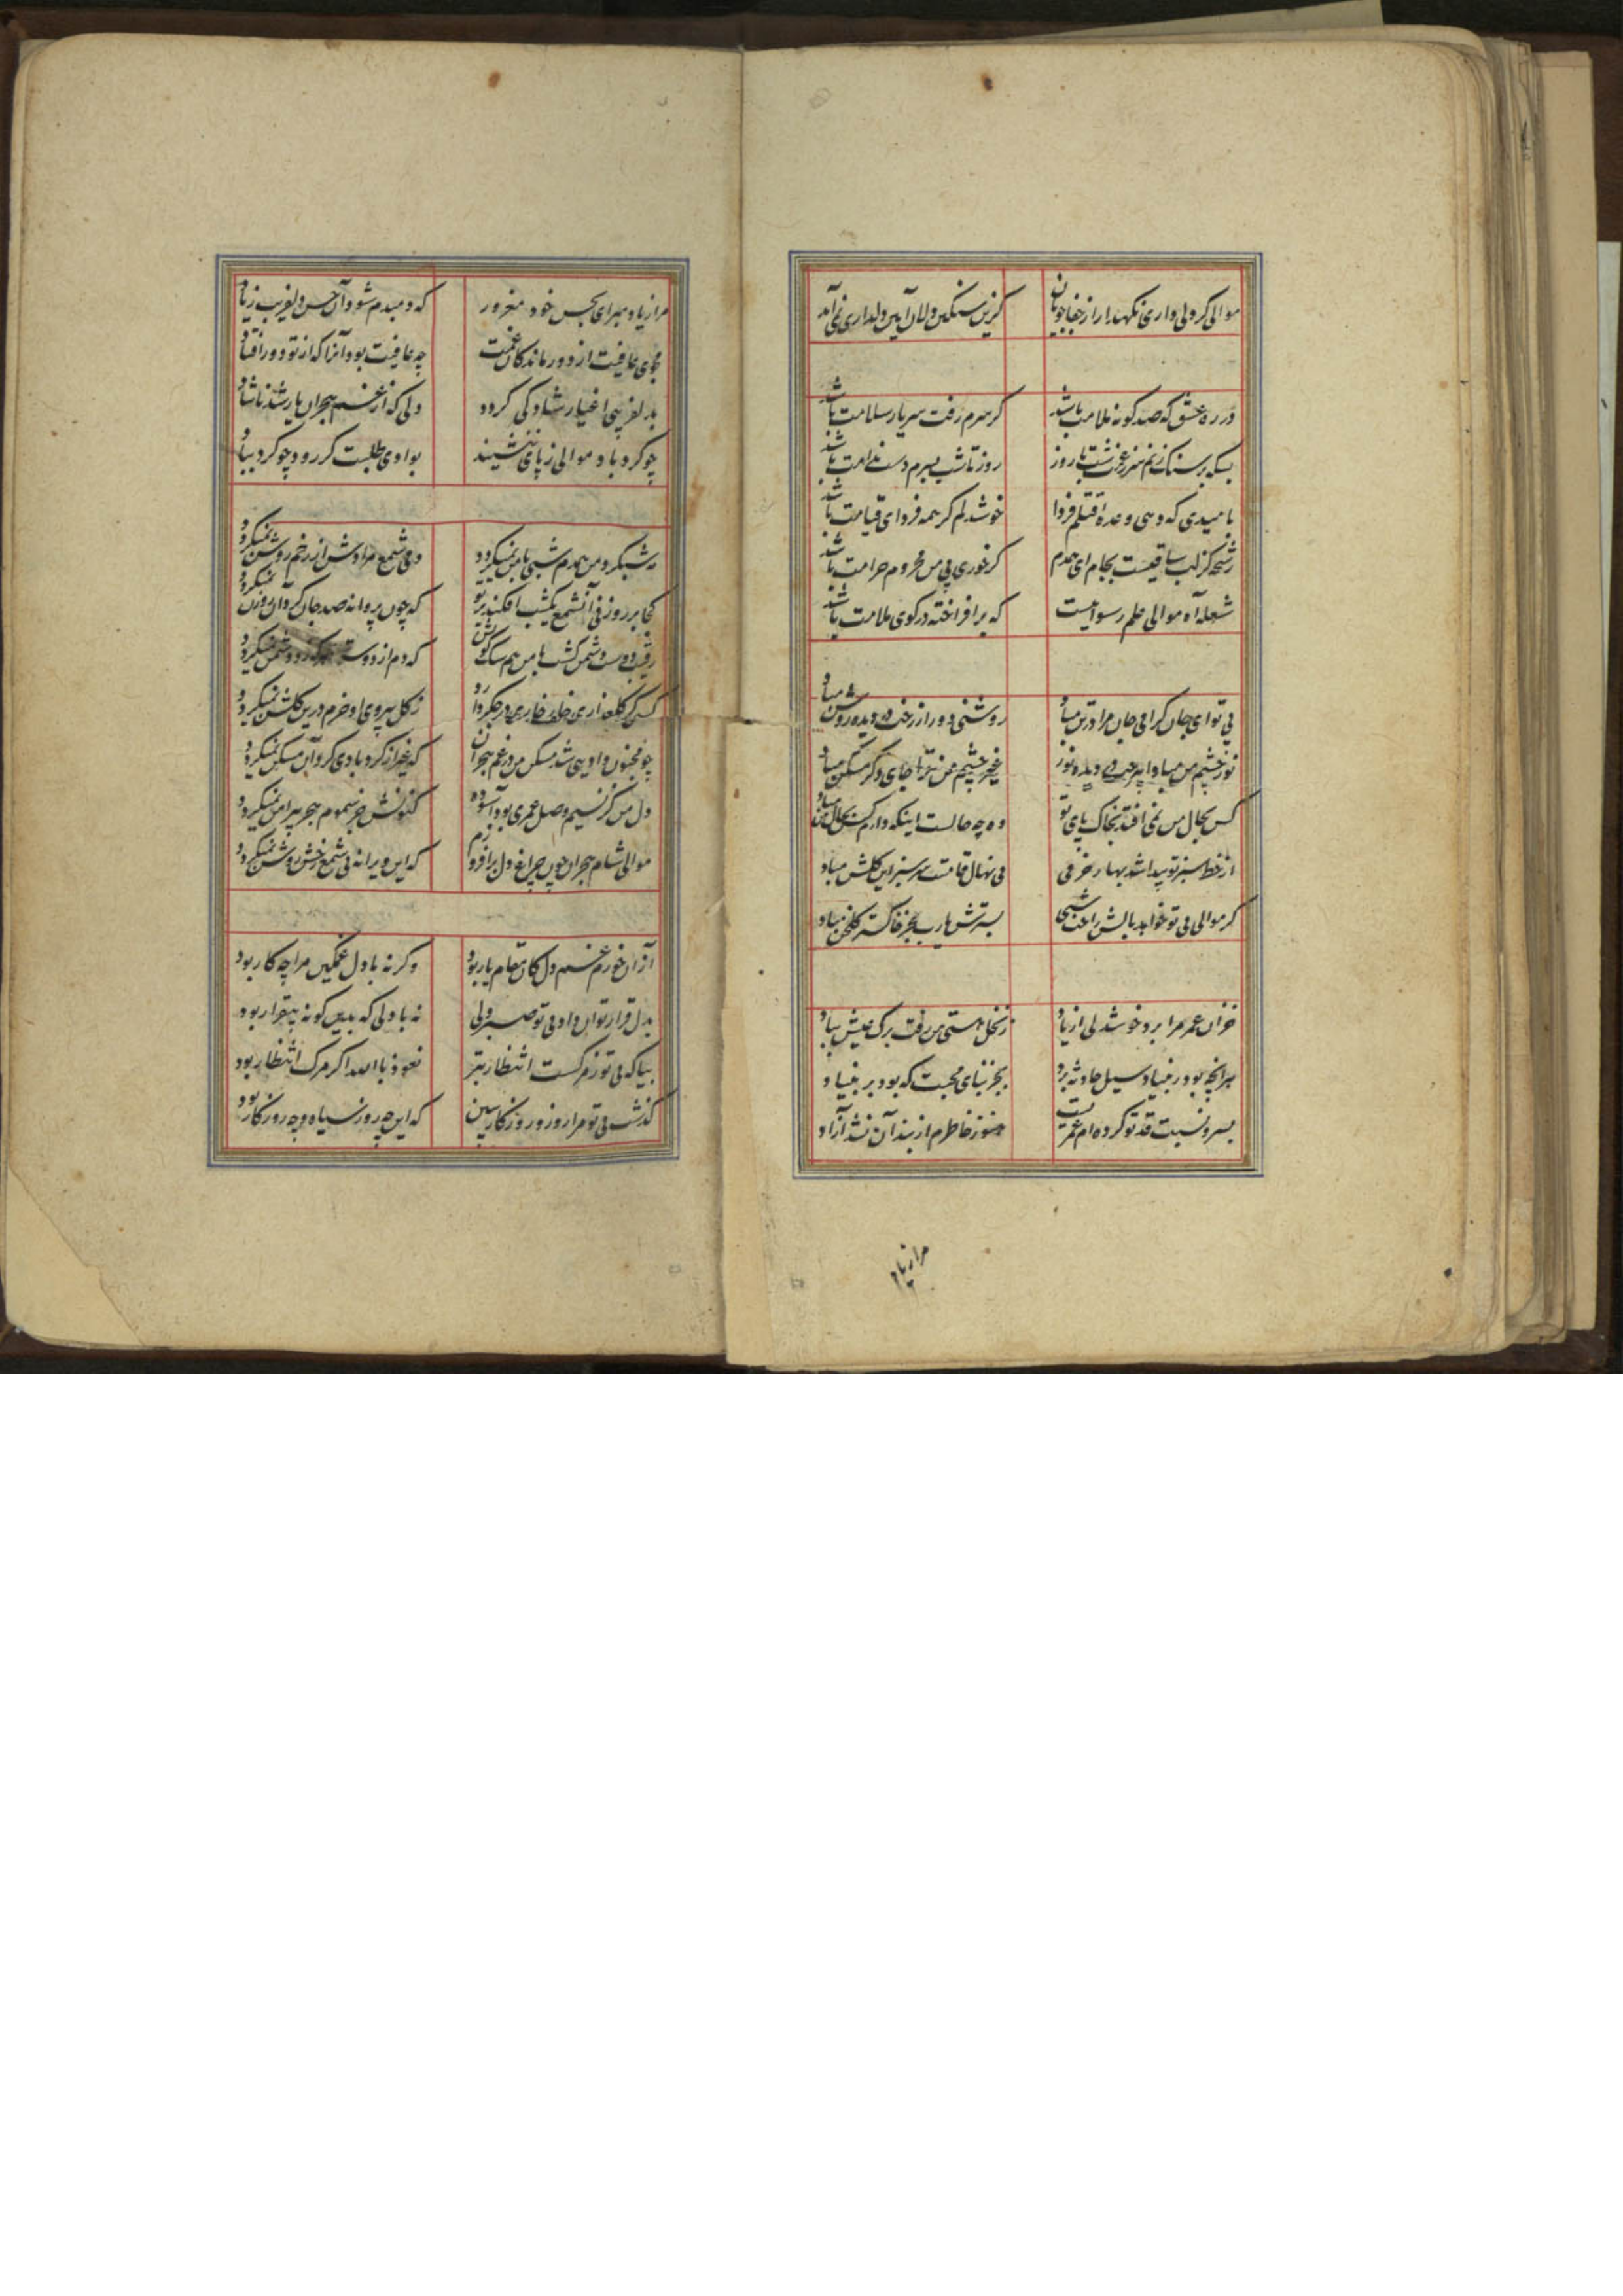 موالی گر دلی داری نگهدار از جفاجویان
کزین سنگین دلان آیین دلداری نمی آید
در ره عشق که صد گونه ملامت باشد
گر سرم رفت سر یار سلامت باشد
بسکه بر سنک زنم سر ز غمت شب تا روز
روز تا شب بسرم دست ندامت باشد
بامیدی که دهی وعده قتلم فردا
خوشدلم گر همه فردای قیامت باشد
رشحه کز لب ساقیست بجام ای همدم
گر خوری بی من محروم حرامت باشد
شعله آه موالی علم رسواییست
که برافراخته در کوی ملامت باشد
بی تو ای جان گرامی جان مرا در تن مباد
روشنی دور از رخت در دیده روشن مباد
نور چشم من مبادا بی رخت در دیده نور
غیر چشم من ترا جای دگر مسکن مباد
کس بحال من نمی افتد بخاک پای تو
وه چه حالست اینکه دارم کس بحال من مباد
از خط سبز تو پیدا شد بهار خرمی
بی نهال قامتت سرسبز این گلشن مباد
گر موالی بی تو خواهد بالش راحت شبی
بسترش یارب بجز خاکستر گلخن مباد
خزان عمر مرا برد خوشدلی از یاد
ز نخل هستی من رفت برگ عیش بباد
هر آنچه بود ز بنیاد سیل حادثه برد
بجز بنای محبت که بود بر بنیاد
بسرو نسبت قد تو کرده ام عمریست
هنوز خاطرم از بند آن نشد آزاد
مرا زیاد
مرا زیاد مبر ای بحسن خود مغرور
که دمبدم شود آن حسن دلفریب زیاد
مجوی عافیت از دور ماندگان غمت
چه عافیت بود آنرا که از تو دور افتاد
بدلفریبی اغیار شاد کی گردد
دلی که از غم هجران یار شد ناشاد
چو گردباد موالی ز پای ننشیند
بوادی طلبت گر رود چو گرد بباد
مه شبگرد من همدم شبی با من نمیگردد
دمی شمع مرادش از رخم روشن نمیگردد
کجا بر روزنی آنشمع یکشب افکند پرتو
که چون پروانه صد جان گرد آن روزن نمیگردد
که دم از دوست هرگز زد دشمن نمیگردد
کسی کز گلعذاری خار خاری در جگر دارد
ز گل سروی او خرم درین گلشن نمیگردد
چو مجنون وادیی شد مسکن من در غم هجران
که غیر از گردبادی گرد آن مسکن نمیگردد
دل من کز نسیم وصل عمری بود آسوده
کنونش جز سموم هجر پیرامن نمیگردد
موالی شام هجران چون چراغ دل برافروزم
که این ویرانه بی شمع رخش روشن نمیگردد
از آن خورم غم دل کان مقام یار بود
وگرنه با دل غمگین مرا چه کار بود
بدل قرار توان داد بی تو صبر ولی
نه با دلی که بدین گونه بیقرار بود
بیا که بی تو ز مرگست انتظار بتر
نعوذ بالله اگر مرگ انتظار بود
گذشت بی تو مرا روز و روزگار ببین
که این چه روز سیاه و چه روزگار بود